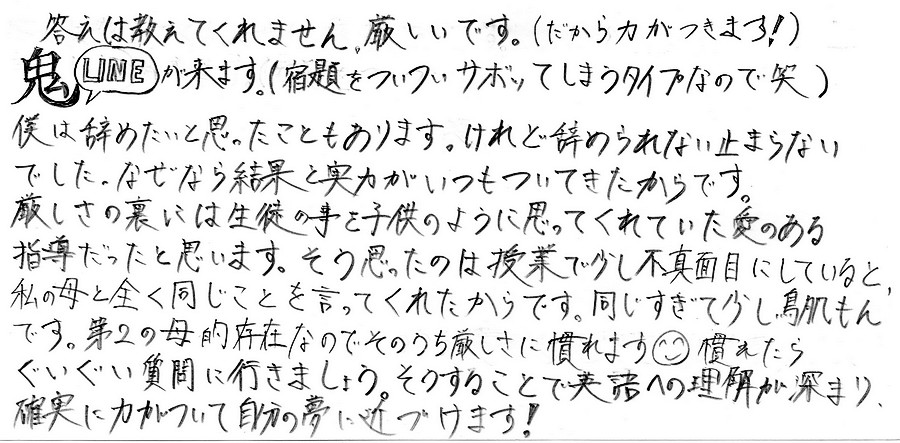 答えは教えてくれません。厳しいです。(だから力がつきます!)
鬼LINEが来ます。(宿題をついついサボッてしまうタイプなので笑)
僕は辞めたいと思ったこともあります。けれど辞められない止まらない
でした。なぜなら結果と実力がいつもついてきたからです。
厳しさの裏には生徒の事を子供のように思ってくれていた愛のある
指導だったと思います。そう思ったのは授業で少し不真面目にしていると、
私の母と全く同じことを言ってくれたからです。同じすぎて少し鳥肌もん
です。第2の母的存在なのでそのうち厳しさに慣れます 慣れたら
ぐいぐい質問に行きましょう。そうすることで英語への理解が深まり、
確実に力がついて自分の夢に近づけます!